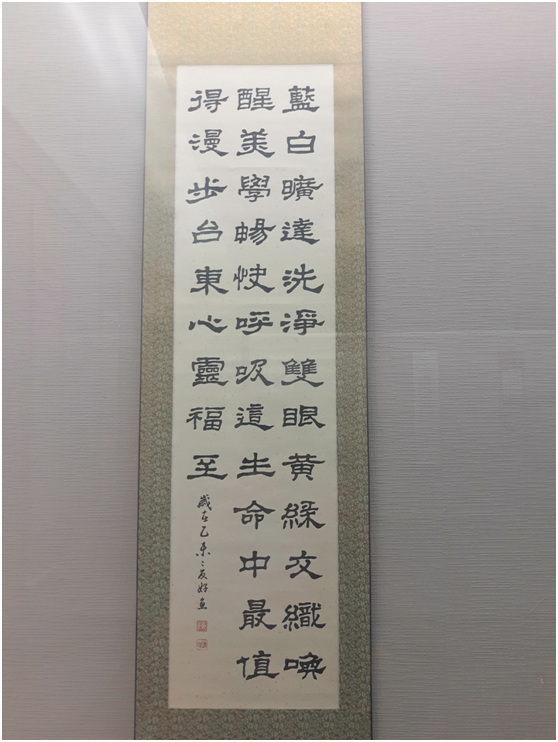 藍白曠達洗淨雙眼黃綠交織喚
醒美學暢快呼吸這生命中最值
得漫步台東心靈福至
歲在乙未